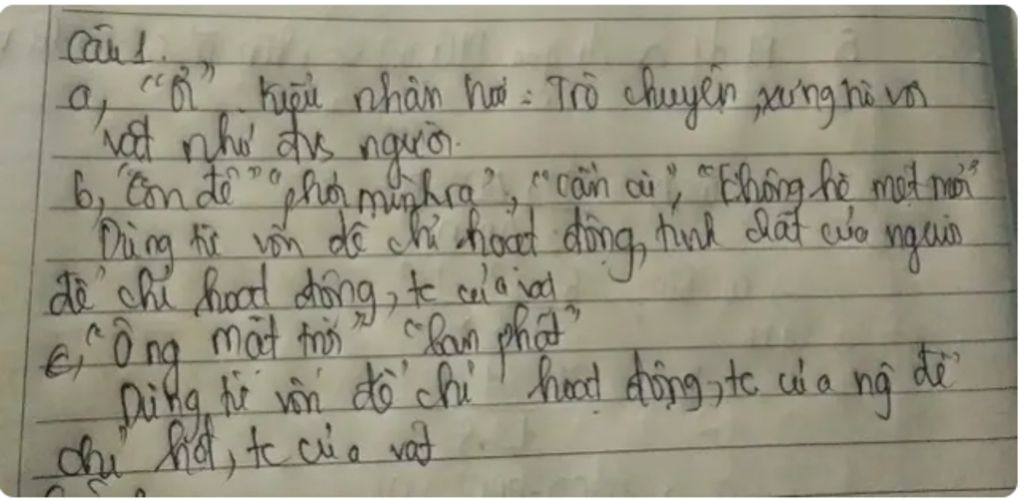 Câu 1.
a, "Ơi" kiểu nhân hoá: Trò chuyện, xưng hô với
vật như đvs người.
b, "Con đê" "phơi mình ra", "cần cù", "không hề mệt mỏi"
Dùng từ vốn để chỉ hoạt động, tính chất của người
để chỉ hoạt động, tc của vật
c, "Ông mặt trời" "ban phát"
Dùng từ vốn để chỉ hoạt động, tc của ng để
chỉ hđ, tc của vật